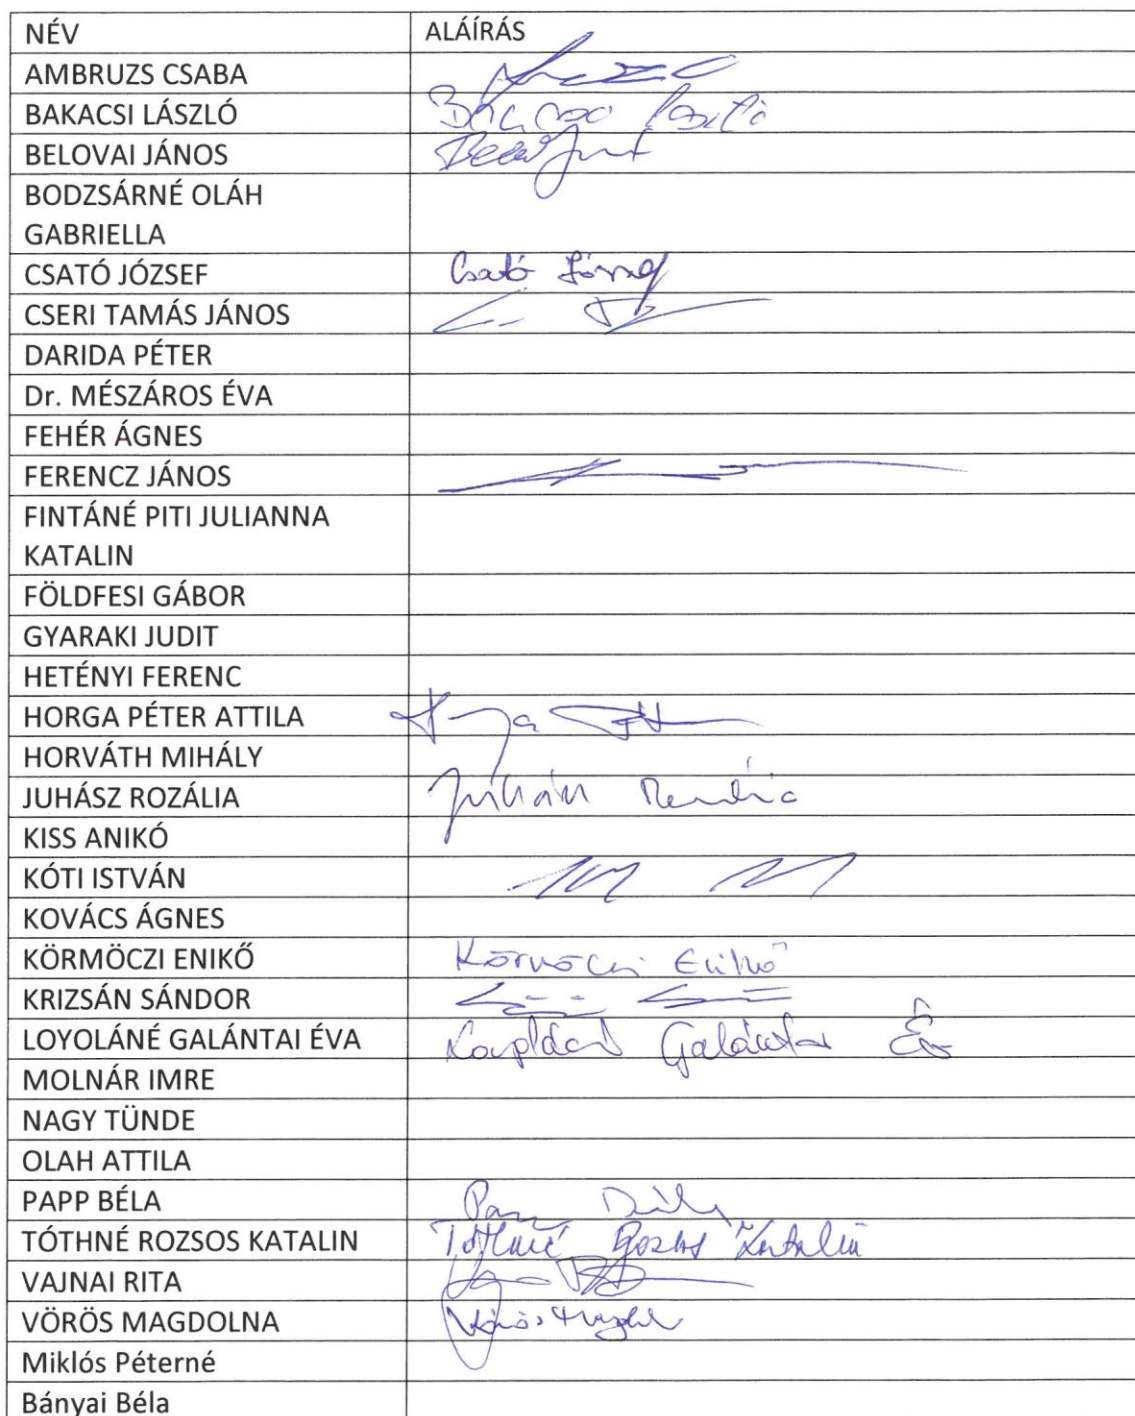 NÉV ALÁÍRÁS
AMBRUZS CSABA
BAKACSI LÁSZLÓ
BELOVAI JÁNOS
BODZSÁRNÉ OLÁH
GABRIELLA
CSATÓ JÓZSEF Csató József
CSERI TAMÁS JÁNOS
DARIDA PÉTER
Dr. MÉSZÁROS ÉVA
FEHÉR ÁGNES
FERENCZ JÁNOS
FINTÁNÉ PITI JULIANNA
KATALIN
FÖLDFESI GÁBOR
GYARAKI JUDIT
HETÉNYI FERENC
HORGA PÉTER ATTILA
HORVÁTH MIHÁLY
JUHÁSZ ROZÁLIA
KISS ANIKÓ
KÓTI ISTVÁN
KOVÁCS ÁGNES
KÖRMÖCZI ENIKŐ Körmöczi Enikő
KRIZSÁN SÁNDOR
LOYOLÁNÉ GALÁNTAI ÉVA Galántai Éva
MOLNÁR IMRE
NAGY TÜNDE
OLAH ATTILA
PAPP BÉLA
TÓTHNÉ ROZSOS KATALIN Tóthné Rozsos Katalin
VAJNAI RITA
VÖRÖS MAGDOLNA
Miklós Péterné
Bányai Béla